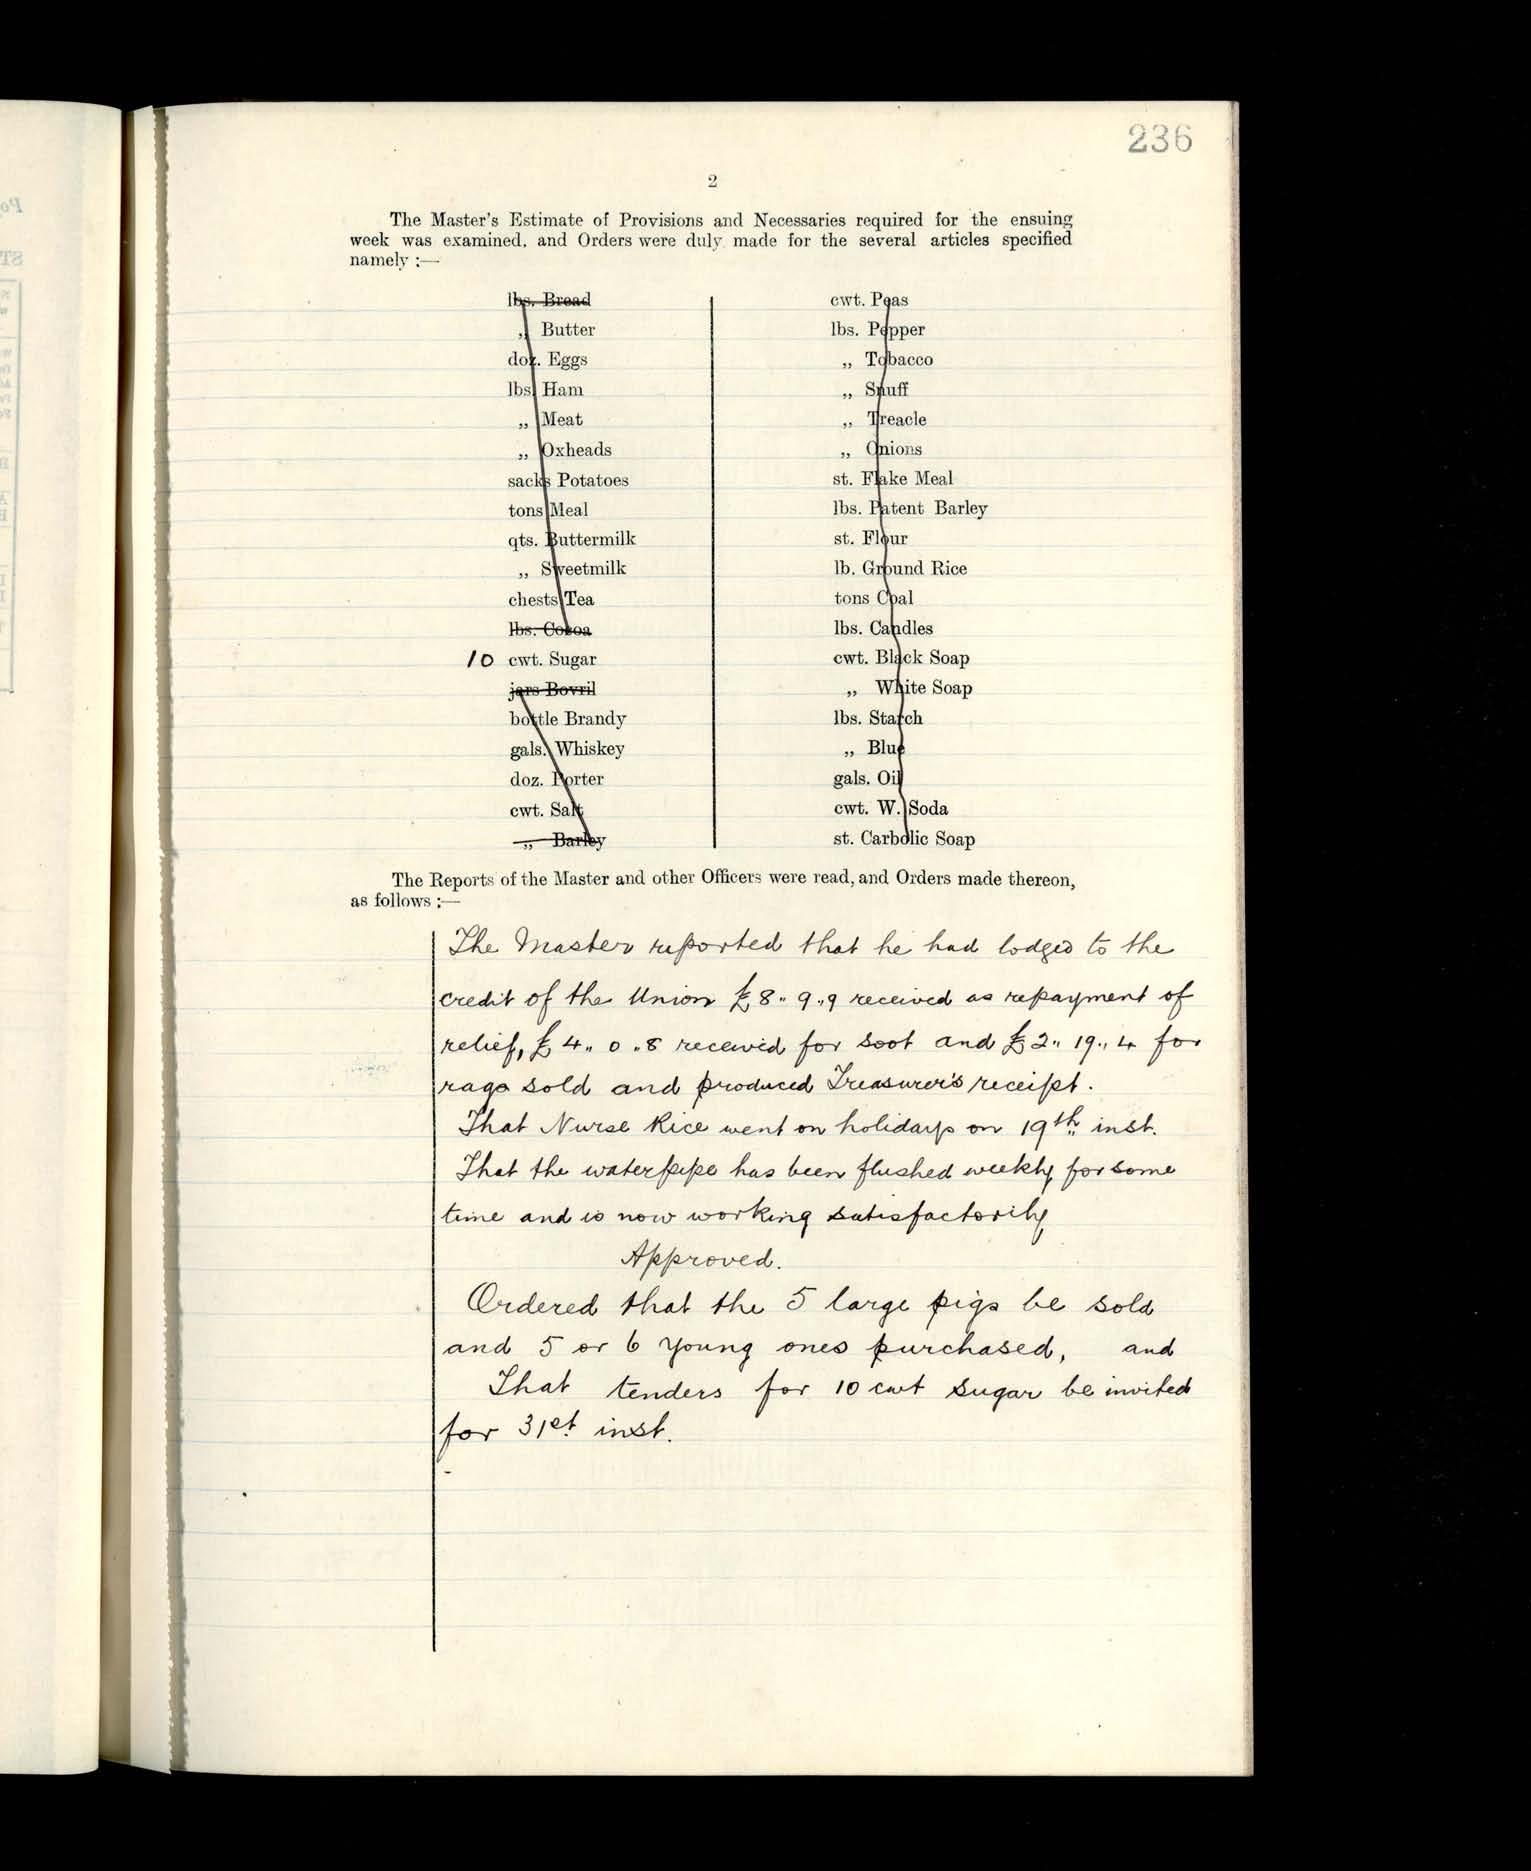 236
2
The Master's Estimate of Provisions and Necessaries required for the ensuing
week was examined, and Orders were duly made for the several articles specified
namely :—
lbs. Bread
„ Butter
doz. Eggs
lbs. Ham
„ Meat
„ Oxheads
sacks Potatoes
tons Meal
qts. Buttermilk
„ Sweetmilk
chests Tea
lbs. Cocoa
10 cwt. Sugar
jars Bovril
bottle Brandy
gals. Whiskey
doz. Porter
cwt. Salt
„ Barley
cwt. Peas
lbs. Pepper
„ Tobacco
„ Snuff
„ Treacle
„ Onions
st. Flake Meal
lbs. Patent Barley
st. Flour
lb. Ground Rice
tons Coal
lbs. Candles
cwt. Black Soap
„ White Soap
lbs. Starch
„ Blue
gals. Oil
cwt. W. Soda
st. Carbolic Soap
The Reports of the Master and other Officers were read, and Orders made thereon,
as follows :—
The Master reported that he had lodged to the
credit of the Union £8„ 9„9 received as repayment of
relief, £4„ 0„8 received for soot and £2„ 19„ 4 for
rags sold and produced Treasurer's receipt.
That Nurse Rice went on holidays on 19th inst.
That the waterpipe has been flushed weekly for some
time and is now working satisfactorily
Approved.
Ordered that the 5 large pigs be sold
and 5 or 6 young ones purchased, and
That tenders for 10 cwt sugar be invited
for 31st inst.